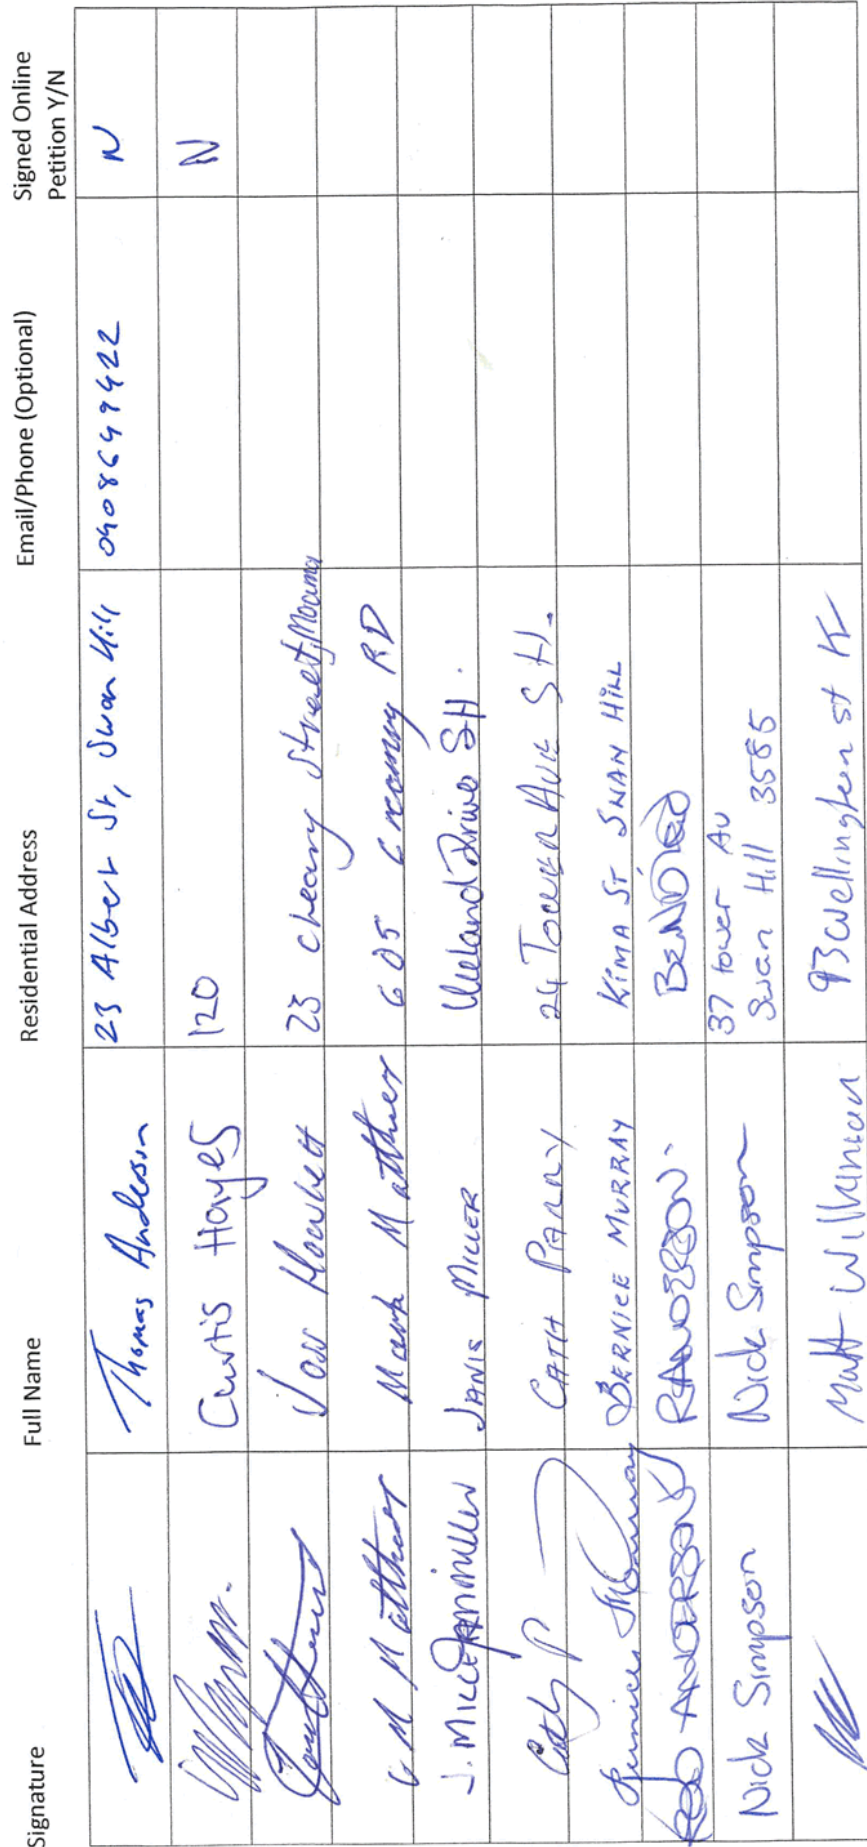 Signature Full Name Residential Address Email/Phone (Optional) Signed Online Petition Y/N
Thomas Anderson 23 Albert St, Swan Hill 0408649422 N
Curtis Hayes 120 N
23 cheary Street, Moama
G M Matthews Mark Matthews 605 RD
J. MILLER JANIS MILLER Drive SH.
Cath P CATH PARRY 24 TOWER AVE SH.
Bernice Murray BERNICE MURRAY KIMA ST SWAN HILL
ROD ANDERSON R ANDERSON. BENDIGO
Nick Simpson Nick Simpson 37 tower AV
Swan Hill 3585
Matt Wilkinson 93 wellington st K